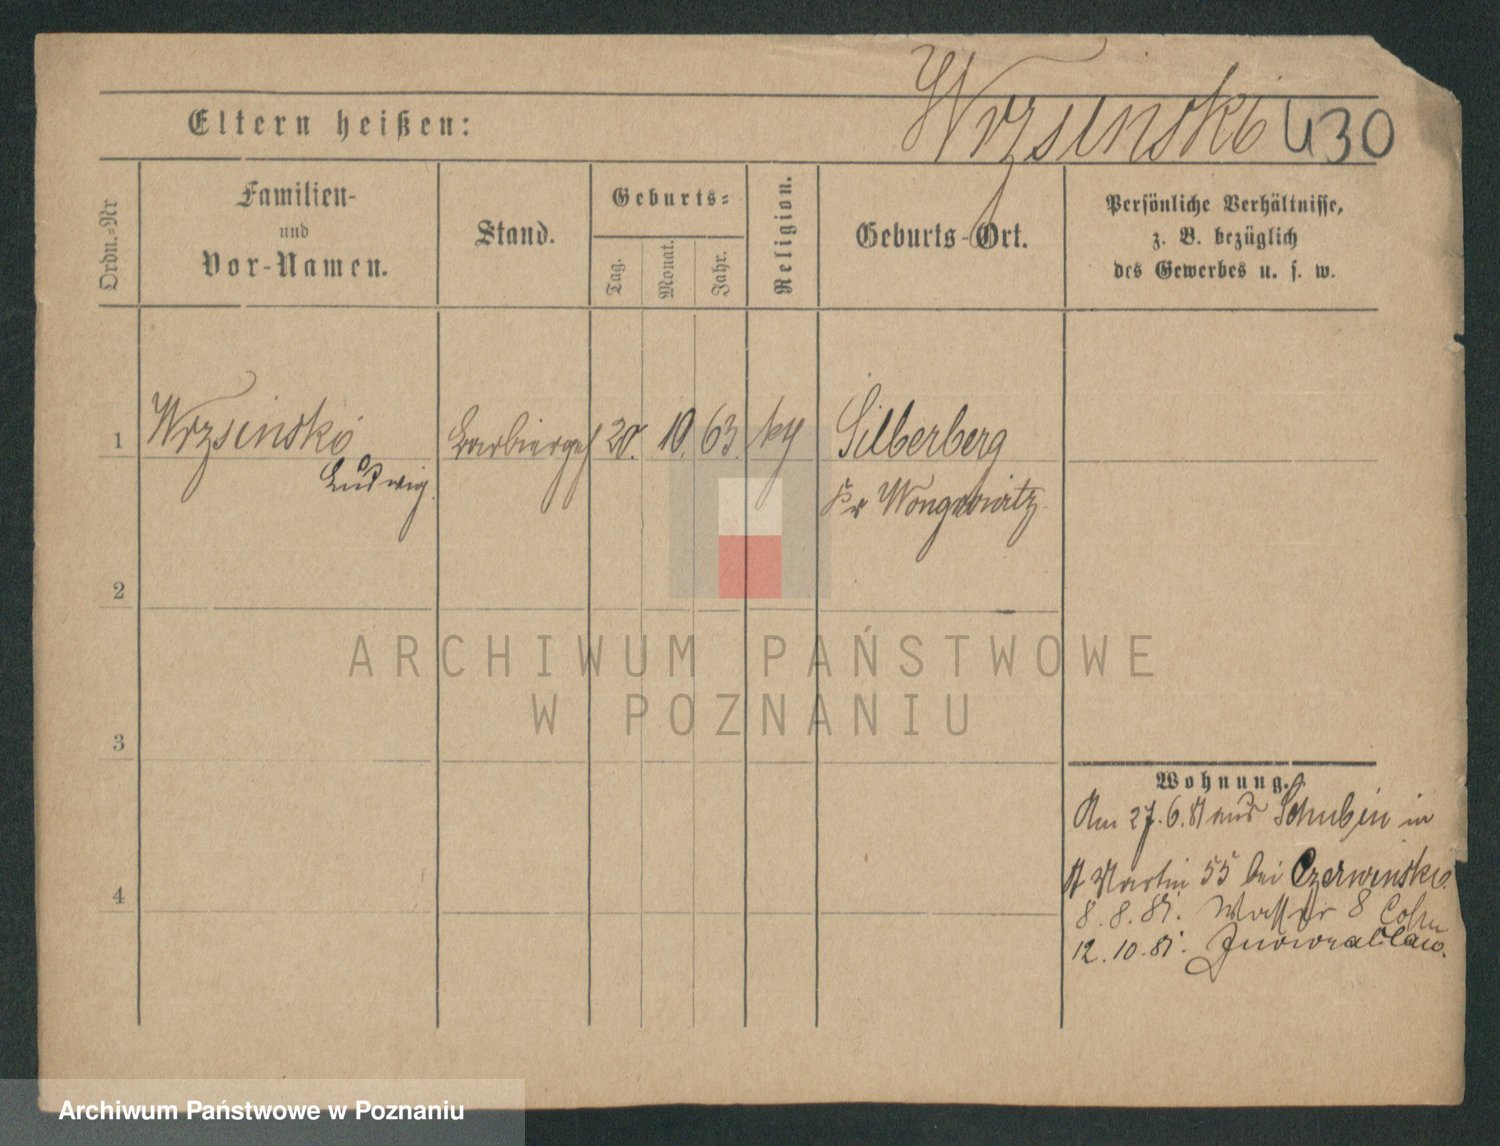 Wrzsinski 430
Eltern heißen:
Ordn.-Nr
Familien-
und
Vor-Namen.
Stand.
Geburts-
Tag.
Monat.
Jahr.
Religion.
Geburts-Ort.
Persönliche Verhältnisse,
z. B. bezüglich
des Gewerbes u. s. w.
1 Wrzsinski Barbiergeh 20. 10. 63. Silberberg
Ludwig. Kr Wongrowitz
2
3
4
Wohnung.
Am 27.6.81 aus Schubin in
St Martin 55 bei Czerwinski
8.8.81. Wasserstr 8 Cohn
12.10.81. Inowrazlaw.
ARCHIWUM PAŃSTWOWE
W POZNANIU
Archiwum Państwowe w Poznaniu